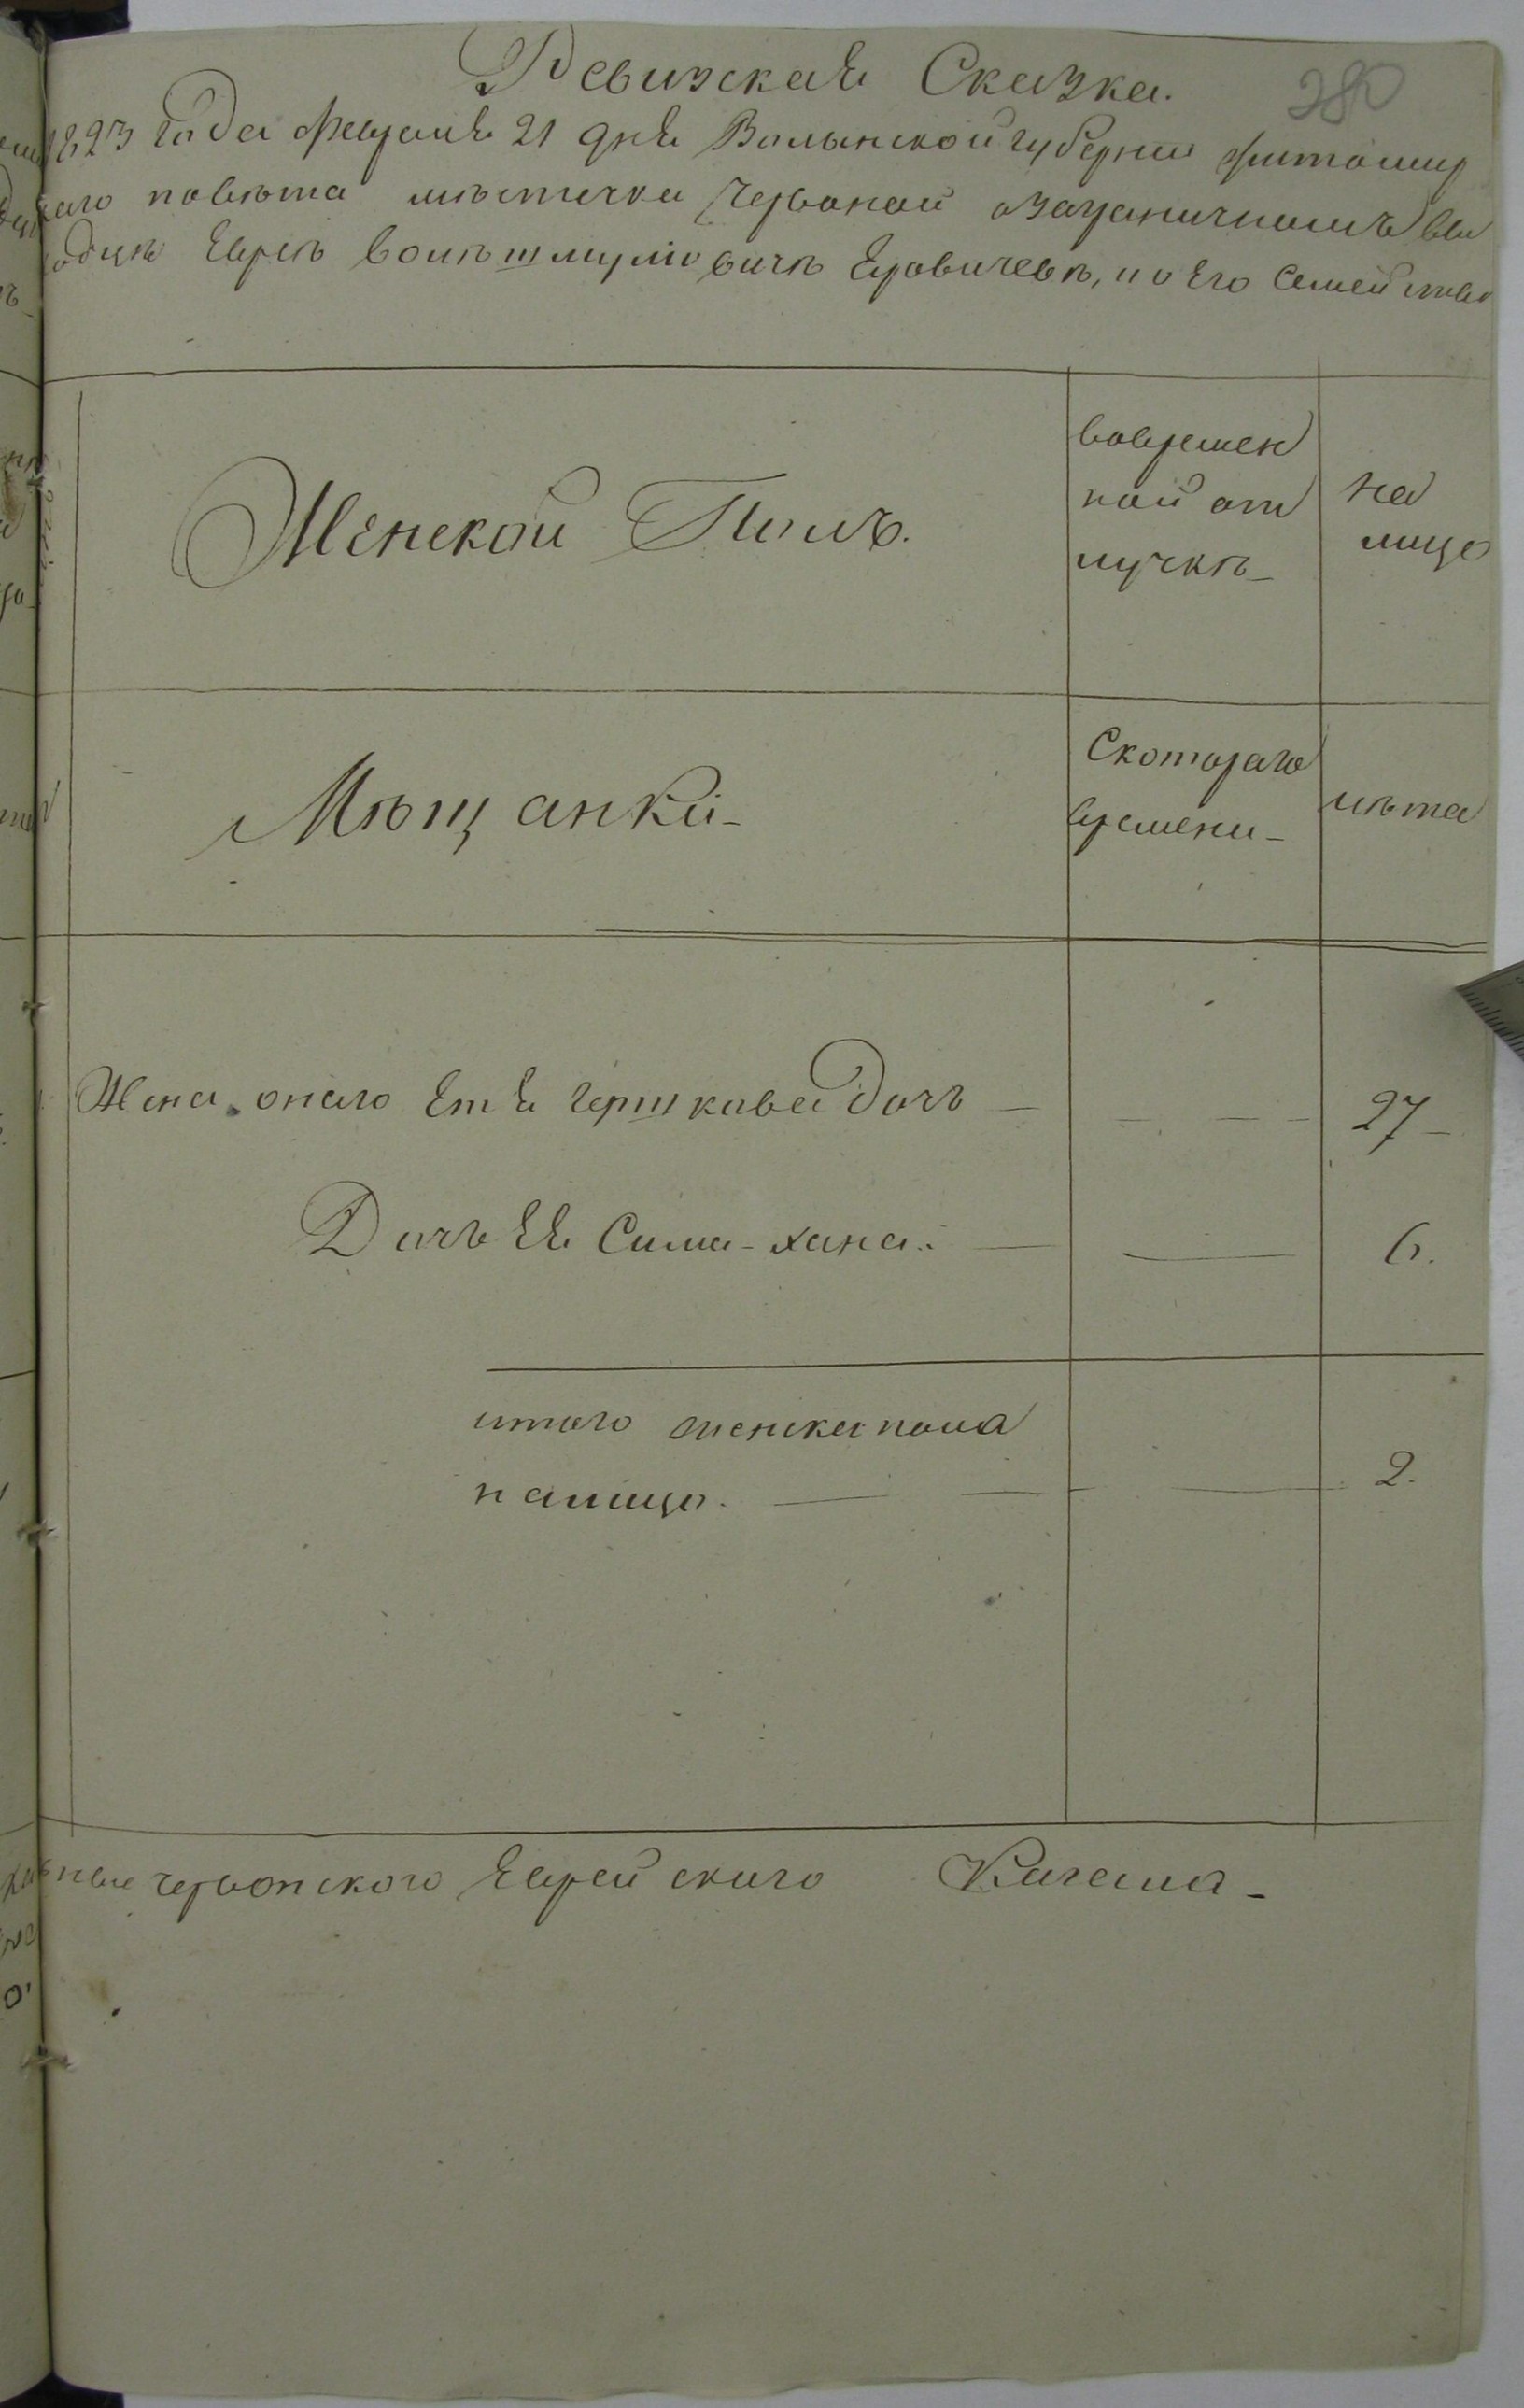 Ревизская Сказка.
280
1823 года февраля 21 дня Волынской губернии житомир
скаго повѣта мѣстечка Червоной озаграничномъ вы
ходцѣ Евреѣ Волкѣ шмулiовичѣ, и о Его Семействѣ
Женской Полъ.
вовремен
ной от
лучкѣ
на
лицо
Мѣщанки
Скотораго
времени
лѣта
Жена онаго Етя гершкова Дочь 27
Дочь Ея Сима-хана. 6.
итого женска пола
налицо. 2.
червонского Еврейскаго Кагала